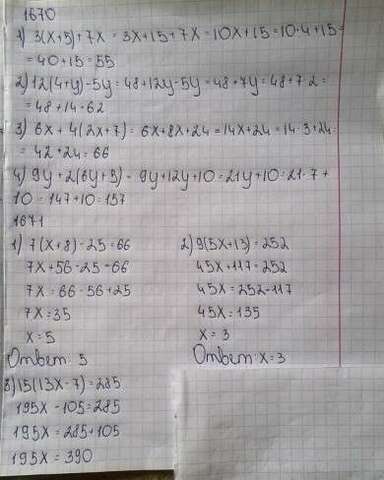 1670
1) 3(x+5)+7x = 3x+15+7x = 10x+15 = 10·4+15 =
= 40+15 = 55
2) 12(4+y)-5y = 48+12y-5y = 48+7y = 48+7·2 =
= 48+14 = 62
3) 6x + 4(2x+7) = 6x+8x+24 = 14x+24 = 14·3+24 =
= 42+24 = 66
4) 9y + 2(6y+5) = 9y+12y+10 = 21y+10 = 21·7+
10 = 147+10 = 157
1671
1) 7(x+8)-25=66
7x+56-25=66
7x=66-56+25
7x=35
x=5
Ответ: 5
2) 9(5x+13)=252
45x+117=252
45x=252-117
45x=135
x=3
Ответ: x=3
3) 15(13x-7)=285
195x-105=285
195x=285+105
195x=390